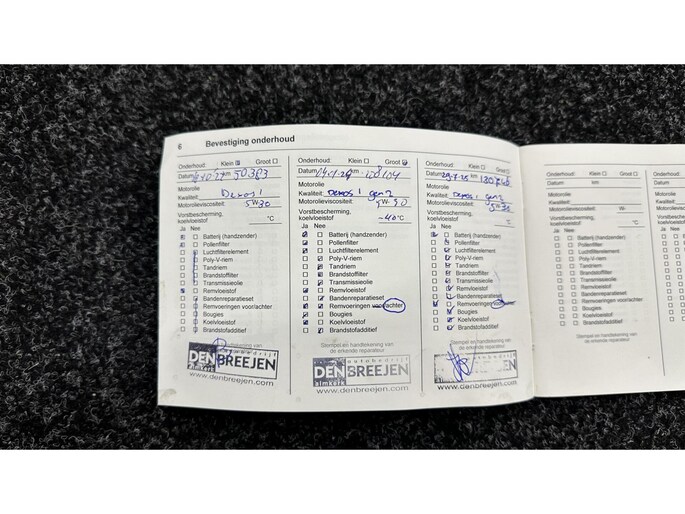 6 Bevestiging onderhoud
Onderhoud: Klein Groot
Datum km 50383
Motorolie
Kwaliteit: Dexos 1
Motorolieviscositeit: 5W30
Vorstbescherming,
koelvloeistof °C
Ja Nee
Batterij (handzender)
Pollenfilter
Luchtfilterelement
Poly-V-riem
Tandriem
Brandstoffilter
Transmissieolie
Remvloeistof
Bandenreparatieset
Remvoeringen voor/achter
Bougies
Koelvloeistof
Brandstofadditief
autobedrijf
DEN BREEJEN
almkerk
www.denbreejen.com
Onderhoud: Klein Groot
Datum km
Motorolie
Kwaliteit: Dexos 1 gen 2
Motorolieviscositeit: 5W-30
Vorstbescherming,
koelvloeistof -40°C
Ja Nee
Batterij (handzender)
Pollenfilter
Luchtfilterelement
Poly-V-riem
Tandriem
Brandstoffilter
Transmissieolie
Remvloeistof
Bandenreparatieset
Remvoeringen voor/achter
Bougies
Koelvloeistof
Brandstofadditief
Stempel en handtekening van
de erkende reparateur
autobedrijf
DEN BREEJEN
almkerk
www.denbreejen.com
Onderhoud: Klein Groot
Datum km
Motorolie
Kwaliteit: Dexos 1 gen 2
Motorolieviscositeit: 5-30
Vorstbescherming,
koelvloeistof
Ja Nee
Batterij (handzender)
Pollenfilter
Luchtfilterelement
Poly-V-riem
Tandriem
Brandstoffilter
Transmissieolie
Remvloeistof
Bandenreparatieset
Remvoeringen
Bougies
Koelvloeistof
Brandstofadditief
Stempel en handtekening van
de erkende reparateur
DEN BREEJEN
www.denbreejen.com
Onderhoud: Klein Groot
Datum km
Motorolie
Kwaliteit:
Motorolieviscositeit: W-
Vorstbescherming,
koelvloeistof °C
Ja Nee
Batterij (handzender)
Pollenfilter
Luchtfilterelement
Poly-V-riem
Tandriem
Brandstoffilter
Transmissieolie
Remvloeistof
Bandenreparatieset
Remvoeringen voor/achter
Bougies
Koelvloeistof
Brandstofadditief
Stempel en handtekening van
de erkende reparateur